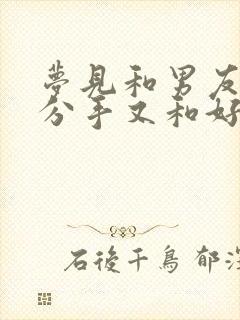 夢見和男友
分手又和好
石後千鳥 郁